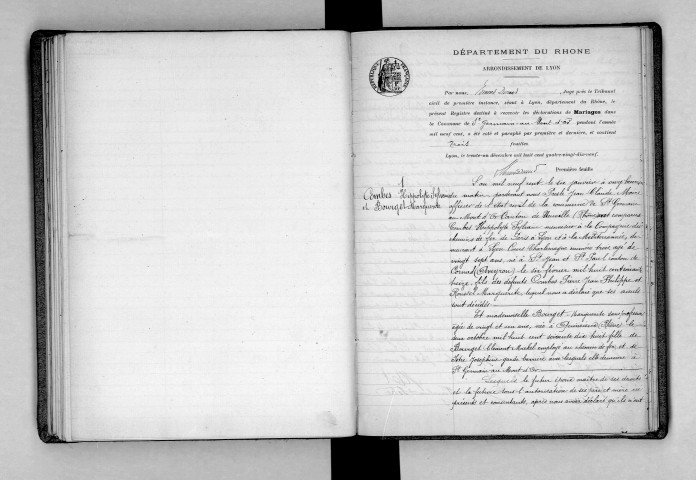 DÉPARTEMENT DU RHONE
ARRONDISSEMENT DE LYON
RÉPUBLIQUE FRANÇAISE
Par nous, Juge près le Tribunal
civil de première instance, séant à Lyon, département du Rhône, le
présent Registre destiné à recevoir les déclarations de Mariages dans
la Commune de St Germain-au-Mont d'or pendant l'année
mil neuf cent, a été coté et paraphé par première et dernière, et contient
feuilles.
Lyon, le trente-un décembre mil huit cent quatre-vingt-dix-neuf.
Première feuille
1
Combes Hippolyte Sylvain
et Bourget Marguerite
L'an mil neuf cent, le six janvier à onze heures
du matin pardevant nous Jean Claude, Maire
officier de l'état civil de la commune de St Germain
au Mont d'Or Canton de Neuville (Rhône) ont comparu
Combes Hippolyte Sylvain menuisier à la Compagnie des
chemins de fer de Paris à Lyon et à la Méditerranée, de-
meurant à Lyon Cours Charlemagne numéro trois âgé de
vingt sept ans, né à St Jean et St Paul canton de
Cornus (Aveyron) le six février mil huit cent soixante
treize, fils des défunts Combes Pierre Jean Philippe et
Roussel Marguerite, lequel nous a déclaré que ses aïeuls
sont décédés.
Et mademoiselle Bourget Marguerite sans profession
âgée de vingt et un ans, née à (Rhône) le
octobre mil huit cent soixante dix huit fille de
Bourget employé au chemin de fer et de
Joséphine garde barrière avec lesquels elle demeure à
St Germain au Mont d'Or
Lesquels le futur époux maître de ses droits
et la future sous l'autorisation de ses père et mère ici
présents et consentants, après nous avoir déclaré qu'ils n'ont